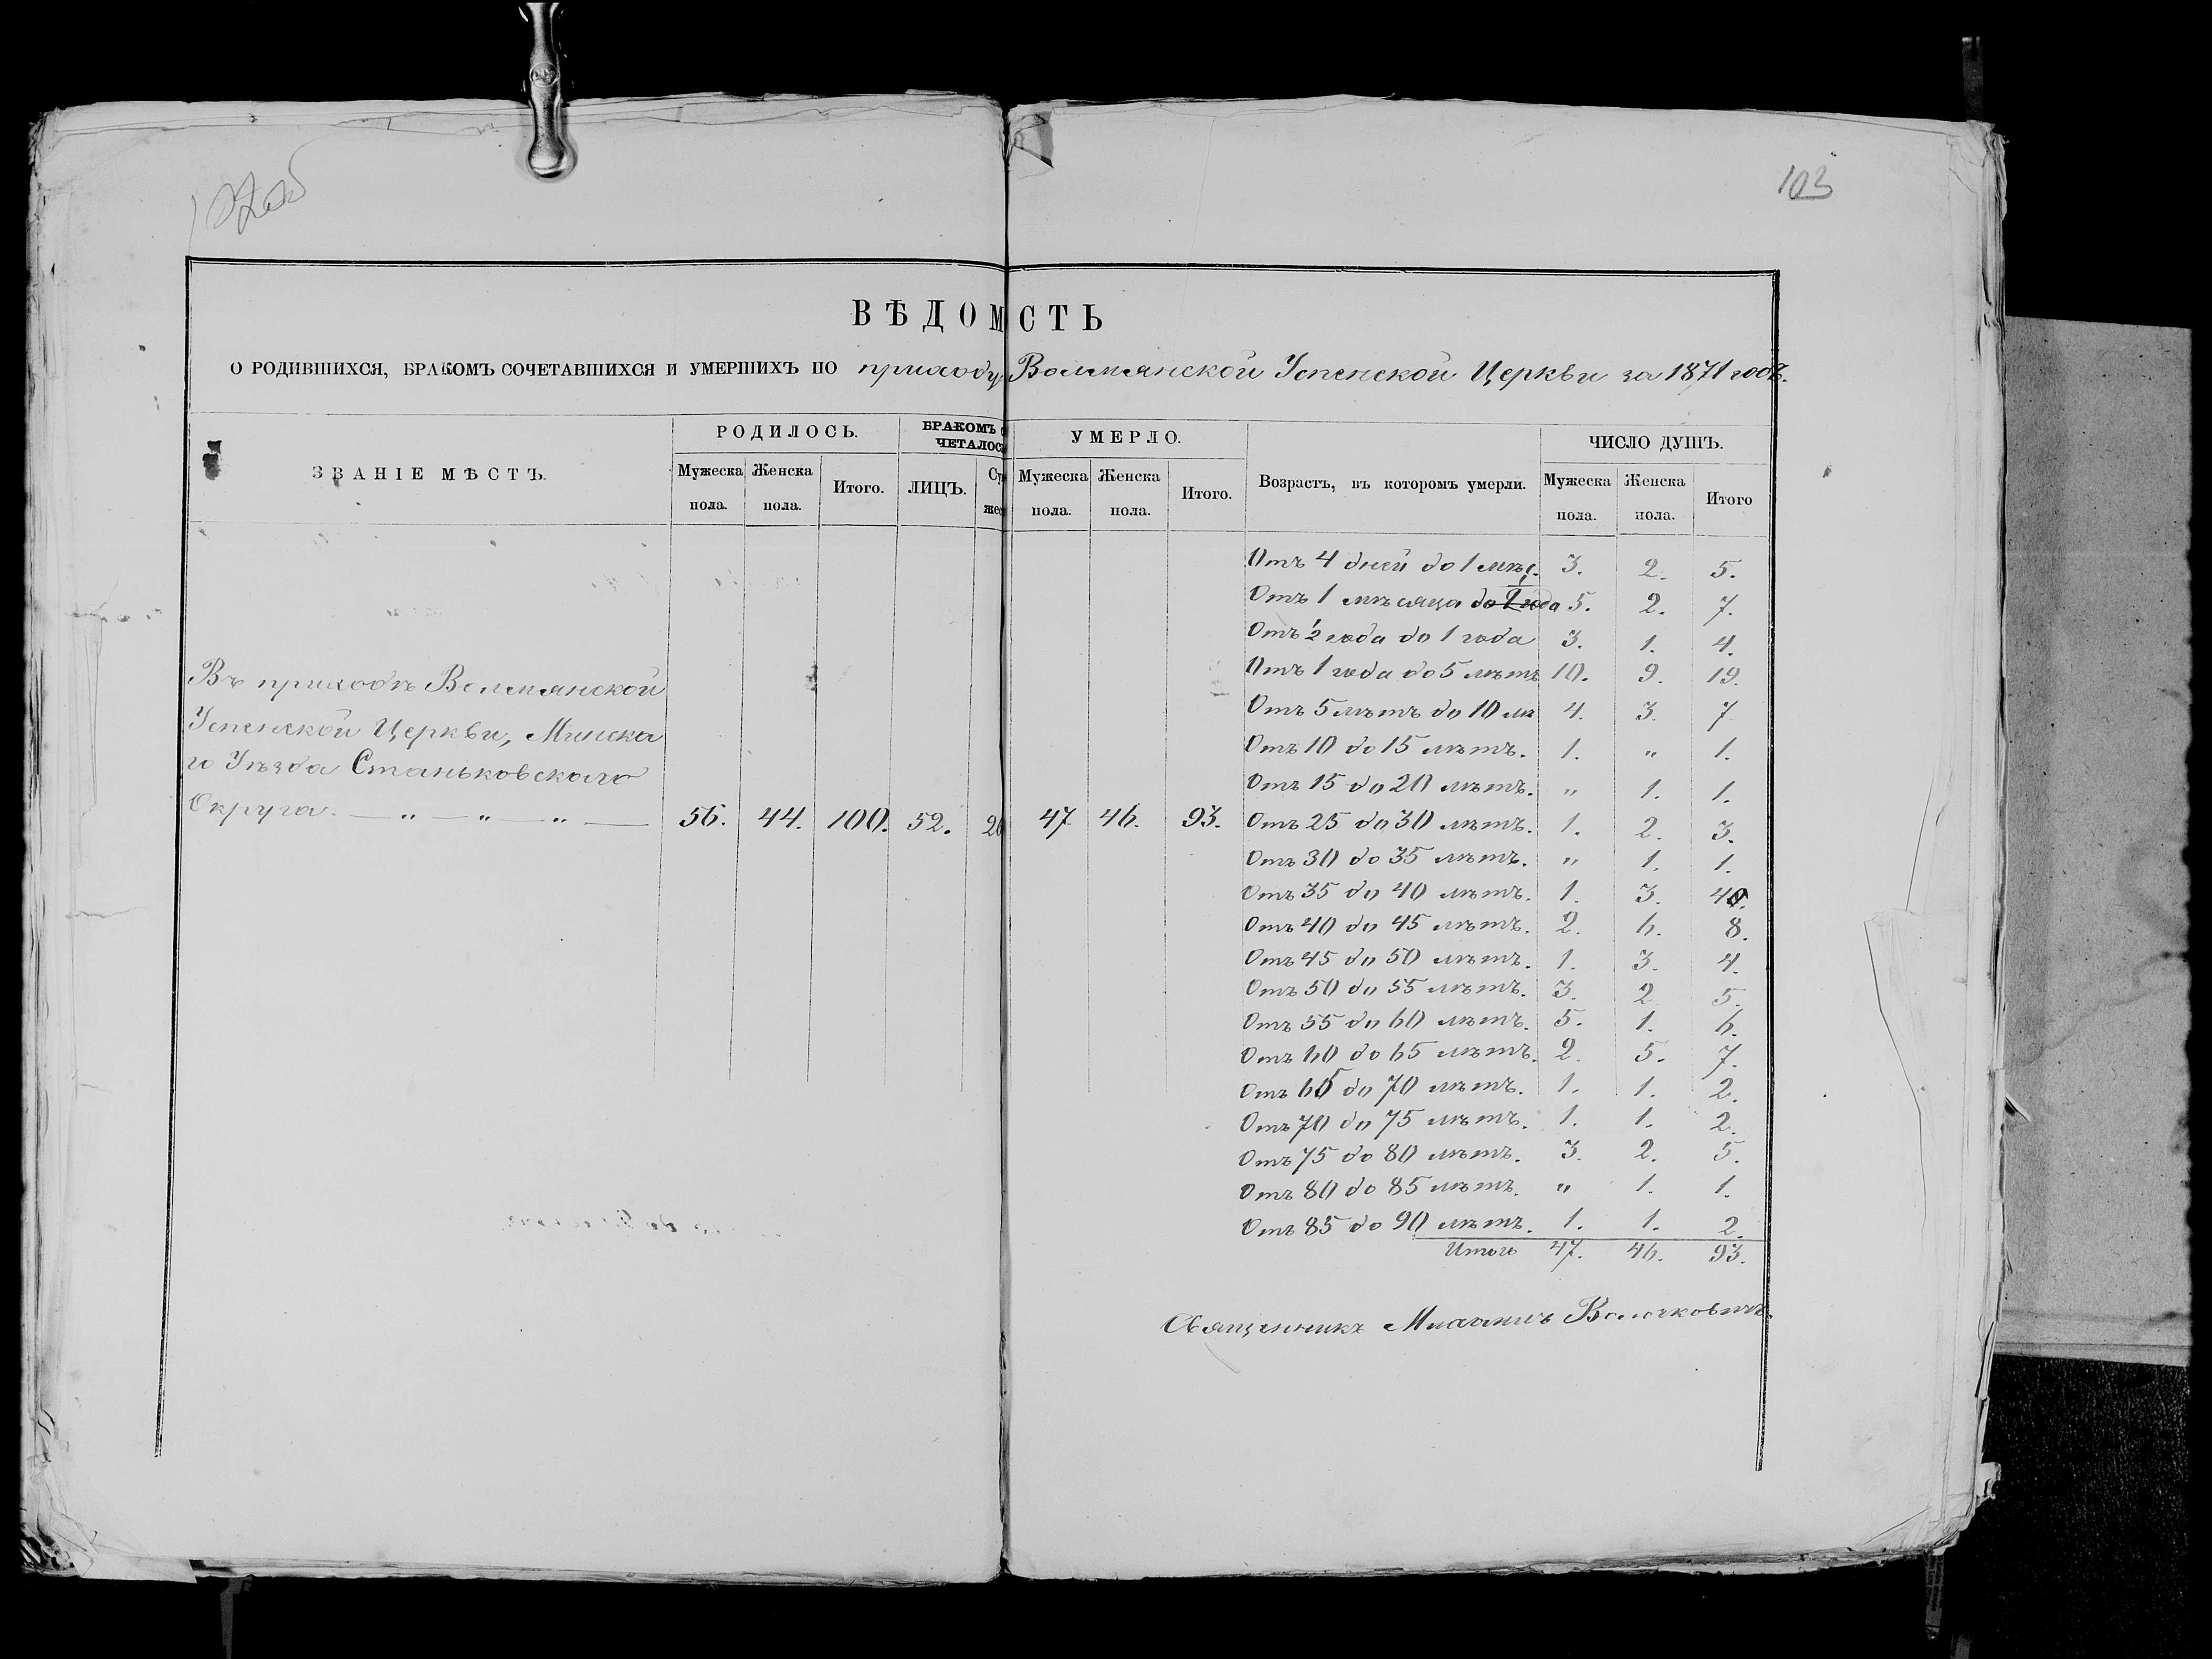 103
ВѢДОМСТЬ
О РОДИВШИХСЯ, БРАКОМЪ СОЧЕТАВШИХСЯ И УМЕРШИХЪ ПО приходу Волмянской Успенской Церкви за 1871 годъ.
ЗВАНІЕ МѢСТЪ.
РОДИЛОСЬ.
Мужеска пола.
Женска пола.
Итого.
БРАКОМЪ
ЧЕТАЛОСЬ
ЛИЦЪ.
УМЕРЛО.
Мужеска пола.
Женска пола.
Итого.
Возрастъ, въ которомъ умерли.
ЧИСЛО ДУШЪ.
Мужеска пола.
Женска пола.
Итого
Въ приходѣ Волмянской
Успенской Церкви, Минска
го Уѣзда Станьковскаго
Округа. — „ — „ — „ — 56. 44. 100. 52. 26 47 46. 93.
Отъ 4 дней до 1 мѣс. 3. 2. 5.
Отъ 1 мѣсяца до ½ года 5. 2. 7.
Отъ ½ года до 1 года 3. 1. 4.
Отъ 1 года до 5 лѣтъ 10. 9. 19.
Отъ 5 лѣтъ до 10 лѣ 4. 3. 7
Отъ 10 до 15 лѣтъ. 1. „ 1.
Отъ 15 до 20 лѣтъ. „ 1. 1.
Отъ 25 до 30 лѣтъ. 1. 2. 3.
Отъ 30 до 35 лѣтъ. „ 1. 1.
Отъ 35 до 40 лѣтъ. 1. 3. 4.
Отъ 40 до 45 лѣтъ. 2. 6. 8.
Отъ 45 до 50 лѣтъ. 1. 3. 4.
Отъ 50 до 55 лѣтъ. 3. 2 5.
Отъ 55 до 60 лѣтъ. 5. 1. 6.
Отъ 60 до 65 лѣтъ. 2. 5. 7.
Отъ 65 до 70 лѣтъ. 1. 1. 2.
Отъ 70 до 75 лѣтъ. 1. 1. 2.
Отъ 75 до 80 лѣтъ. 3. 2. 5.
Отъ 80 до 85 лѣтъ. „ 1. 1.
Отъ 85 до 90 лѣтъ. 1. 1. 2.
Итого 47. 46. 93.
Священникъ Михаилъ Волочковичъ.